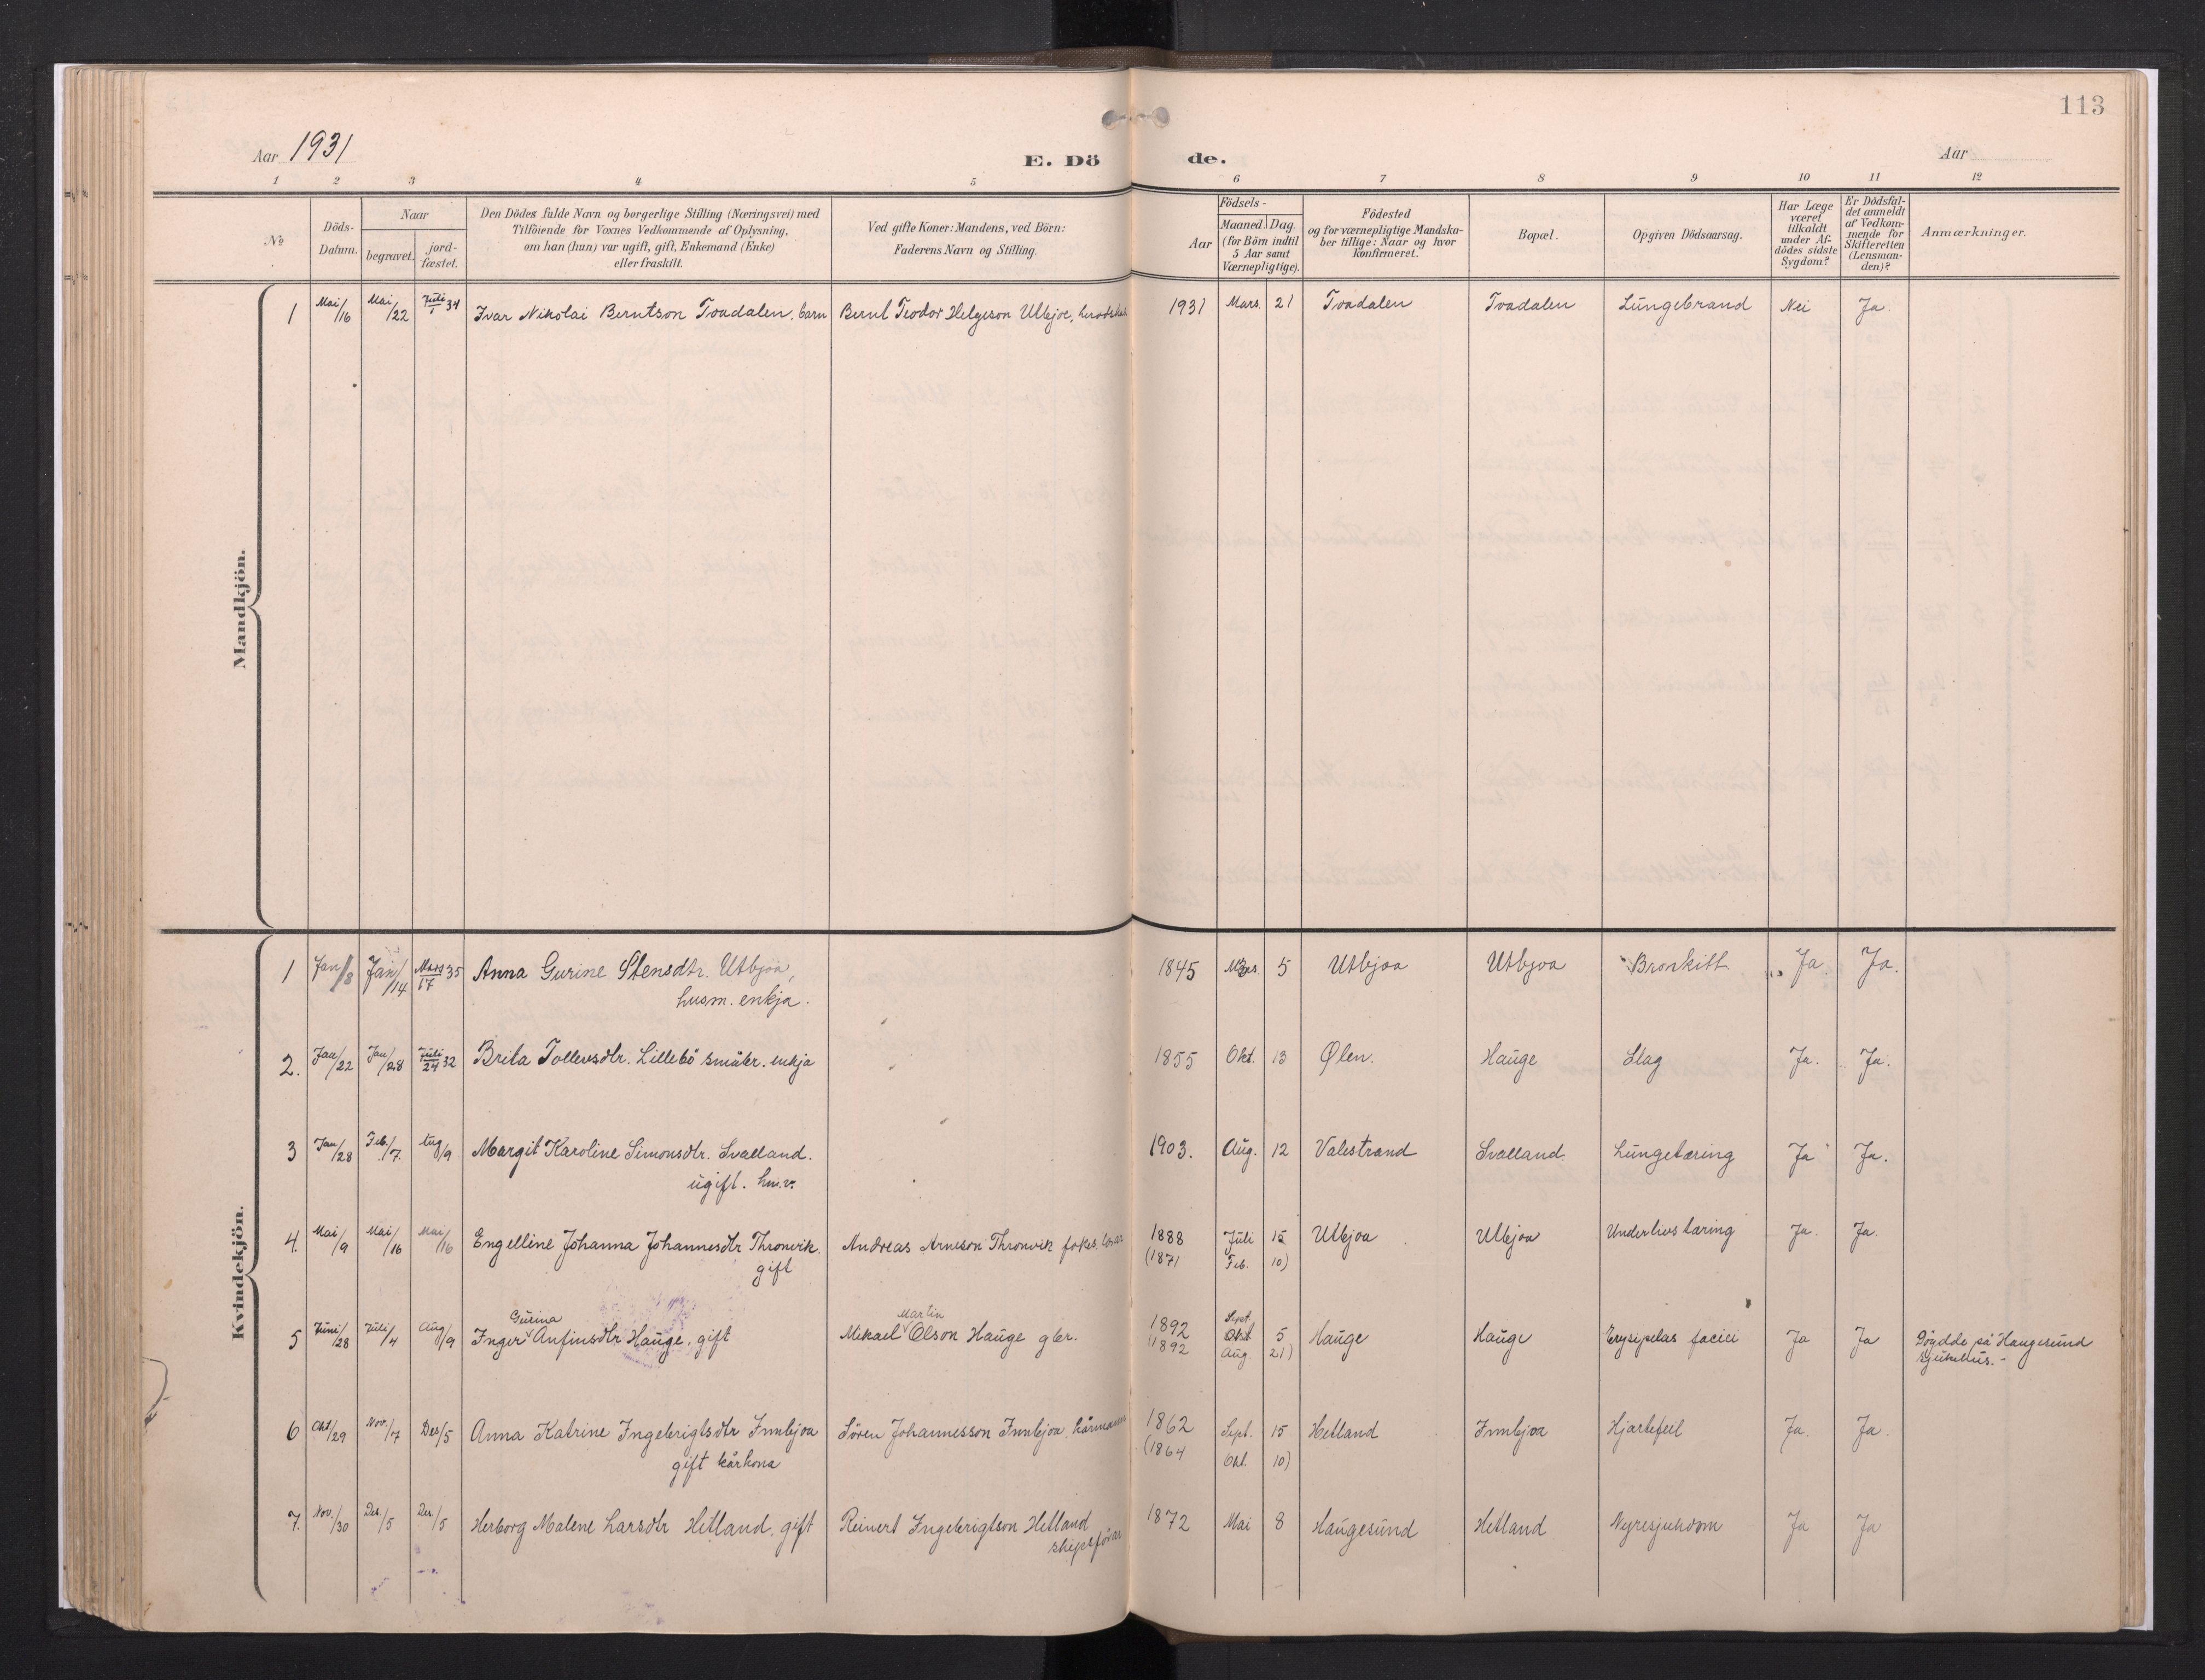 113
Aar 1931
E. Dö de.
Aar
1 2 3 4 5 6 7 8 9 10 11 12
№
Döds-
Datum.
Naar
begravet.
jord-
fæstet.
Den Dödes fulde Navn og borgerlige Stilling (Næringsvei) med
Tilföiende for Voxnes Vedkommende af Oplysning,
om han (hun) var ugift, gift, Enkemand (Enke)
eller fraskilt.
Ved gifte Koner: Mandens, ved Börn:
Faderens Navn og Stilling.
Aar
Födsels-
Maaned. Dag.
(for Börn indtil
5 Aar samt
Værnepligtige).
Födested
og for værnepligtige Mandska-
ber tillige: Naar og hvor
konfirmeret.
Bopæl.
Opgiven Dödsaarsag.
Har Læge
været
tilkaldt
under Af-
dödes sidste
Sygdom?
Er Dödsfal-
det anmeldt
af Vedkom-
mende for
Skifteretten
(Lensman-
den)?
Anmærkninger.
Mandkjön.
1 Mai/16 Mai/22 Juli/1 34 Ivar Nikolai Berntson Tvadalen, barn Bernt Teodor Helgeson Utbjoe, 1931 Mars 21 Tvadalen Tvadalen Lungebrand Nei Ja.
Kvindekjön.
1 Jan/8 Jan/14 Mars/17 35 Anna Gurine Stensdtr. Utbjoa, 1845 5 Utbjoa Utbjoa Bronkitt Ja. Ja.
husm. enkja.
2. Jan/22 Jan/28 Juli/24 32 Brita Tollevsdtr. Lillebö småbr. enkja 1855 Okt. 13 Ølen. Hauge Slag Ja. Ja.
3 Jan/28 Feb./7. Aug/9 Margit Karoline Simonsdtr. Svalland. 1903. Aug. 12 Valestrand Svalland Lungetæring Ja Ja.
ugift. hm.v.
4. Mai/9 Mai/16 Mai/16 Engelline Johanna Johannesdtr Thronvik. Andreas Arneson Thronvik 1888 Juli 15 Utbjoa Utbjoa Underlivs tæring Ja. Ja.
gift (1871 Feb. 10)
Gurina Martin Sept.
5 Juni/28 Juli/4 Aug/9 Inger Anfinsdtr Hauge, gift Mikael Olson Hauge gbr. 1892 Okt 5 Hauge Hauge Erysipelas faciei Ja Ja Döydde på Haugesund
(1892 Aug. 21) sjukehus.-
6 Okt/29 Nov./7 Des/5 Anna Katrine Ingebrigtsdtr Innbjoa Sören Johannesson Innbjoa kårmann 1862 Sept. 15 Hetland Innbjoa Hjartefeil Ja. Ja.
gift kårkona (1864 Okt. 10)
7. Nov./30 Des/5 Des/5 Herborg Malene Larsdtr Hetland, gift Reinert Ingebrigtson Hetland 1872 Mai 8 Haugesund Hetland Nyresjukdom Ja Ja
skipsförar